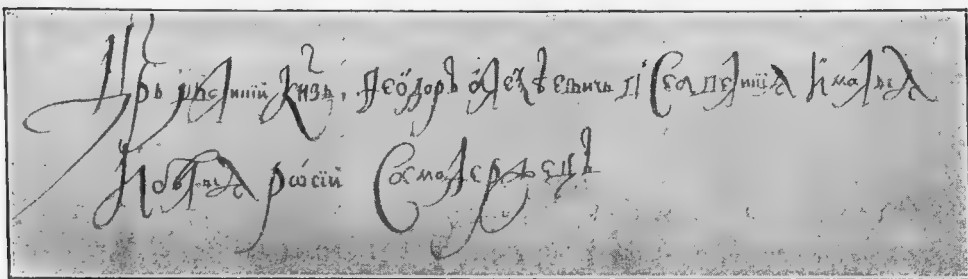 Црь ивеликий Кнзь, Ѳеодоръ алеѯѣевичь всеа великиꙗ и малыꙗ
и бѣлыꙗ рѡсиї Самодержецъ